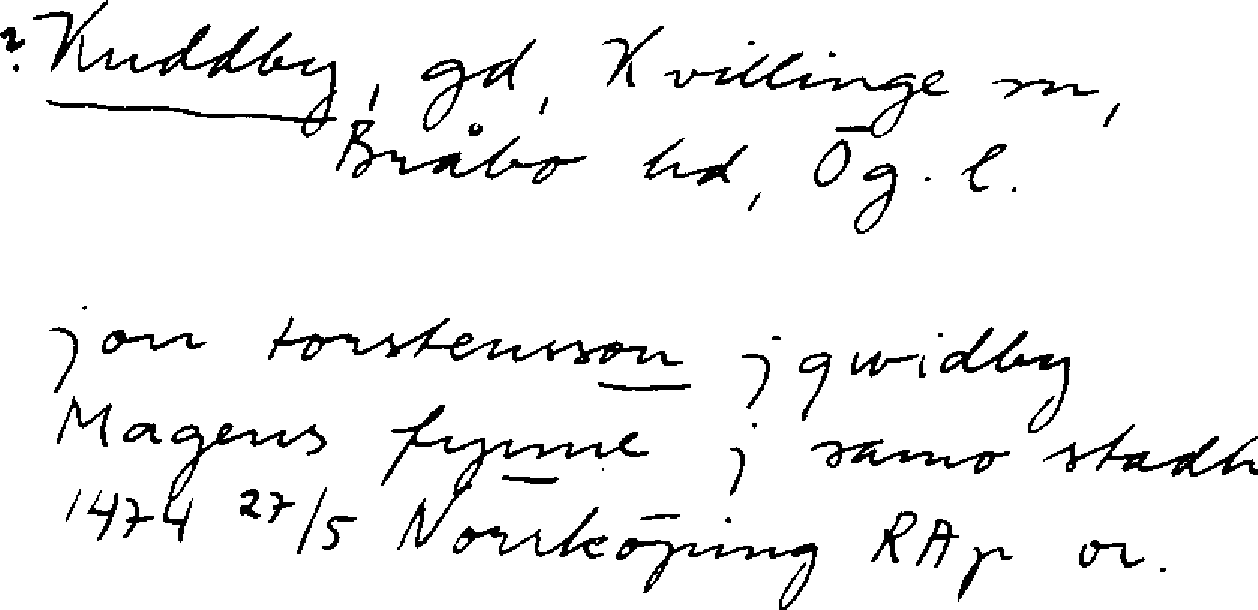 ? Kuddby, gd, Kvillinge sn,
Bråbo hd, Ög. l.
jon torstensson j qwidby
Magens fynne j samo stadh
1474 27/5 Norrköping RAp or.